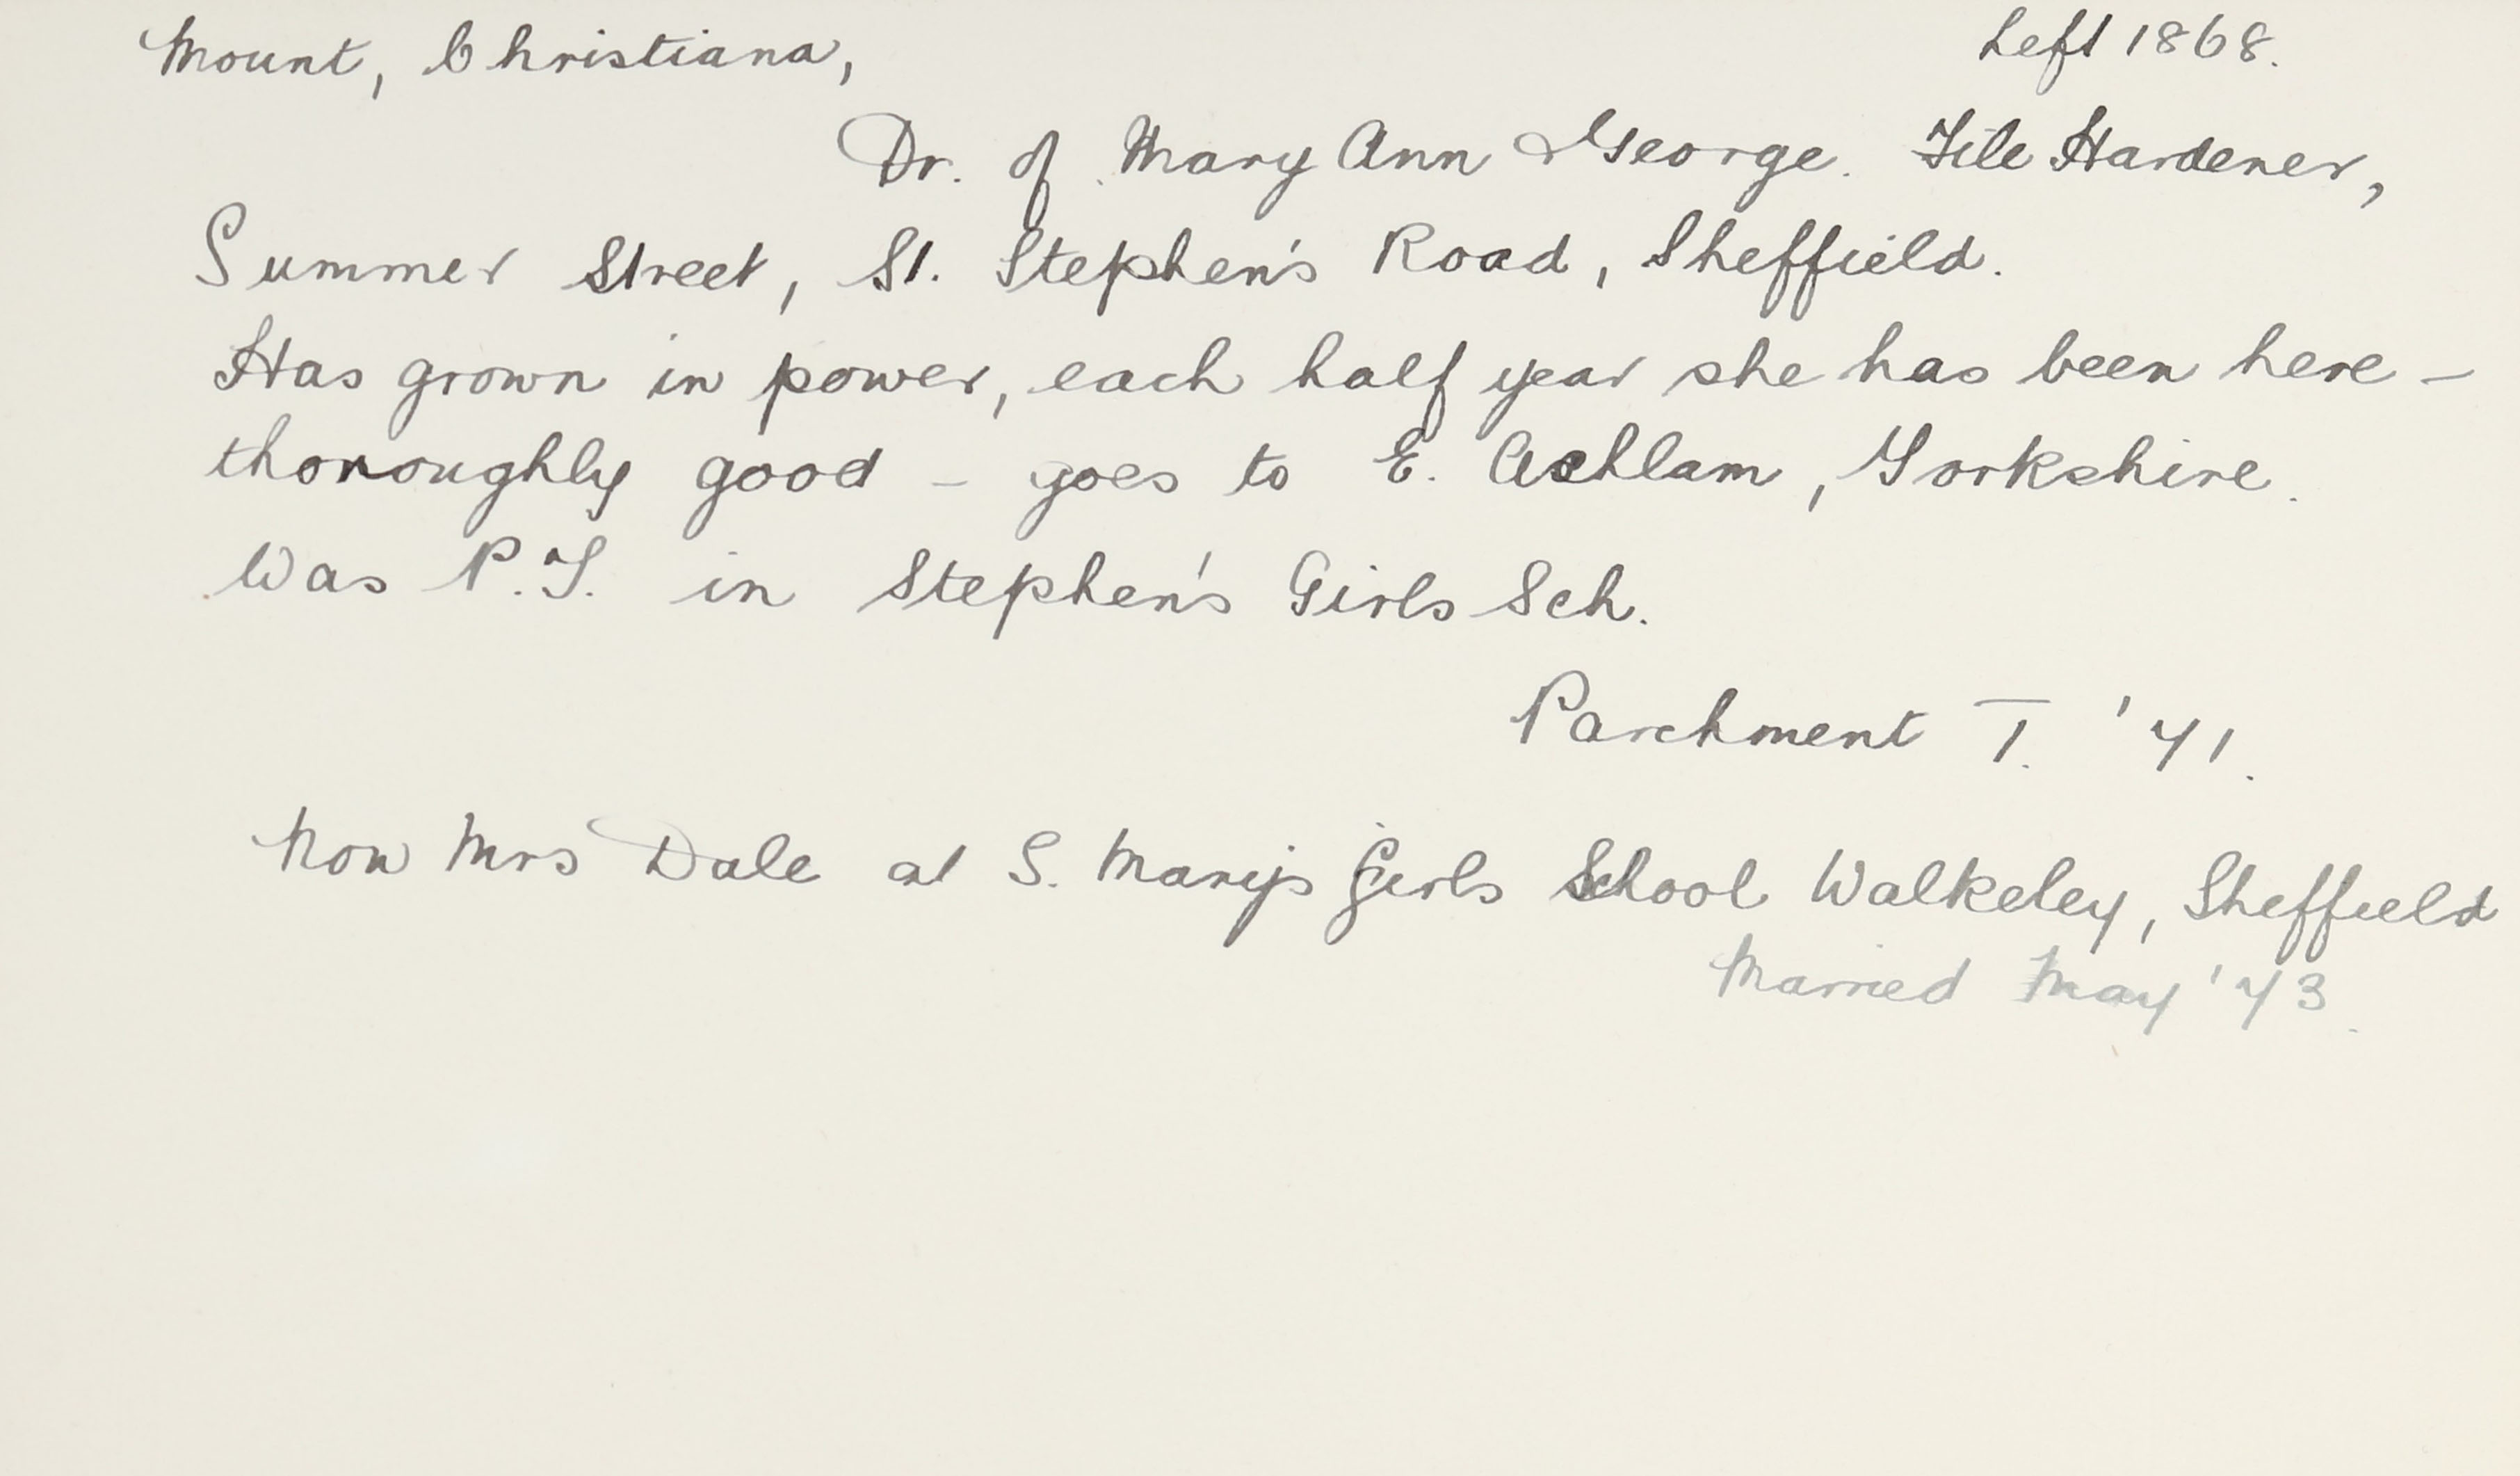 Mount, Christiana, Left 1868.
Dr. of Mary Ann & George. File Hardener,
Summer Street, St. Stephen's Road, Sheffield.
Has grown in power, each half year she has been here -
thoroughly good - goes to E. Acklam, Yorkshire.
Was P.T. in Stephen's Girls Sch.
Parchment T. '71.
Now Mrs Dale at S. Mary's Girls School Walkeley, Sheffield
Married May '73.